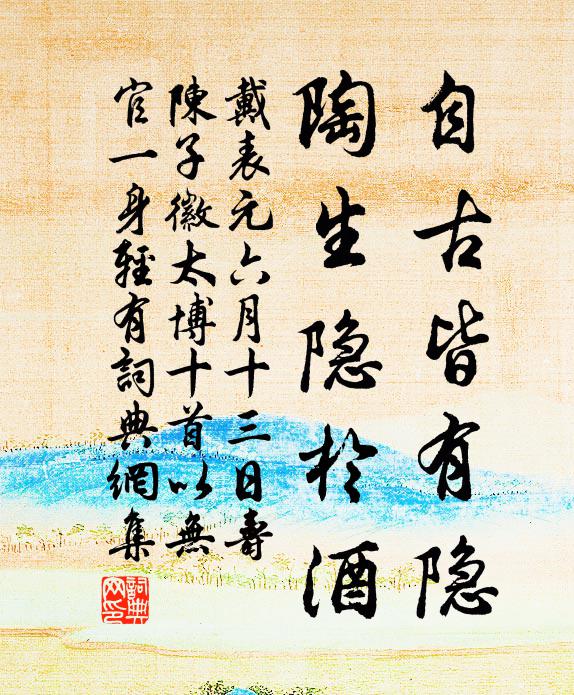 自古皆有隐
陶生隐於酒
戴表元六月十三日壽
陳子徽太博十首以無
官一身輕有詞典網集
詞典
网印